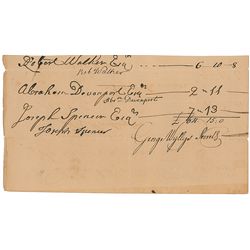 Robert Walker Esqr 6 - 10 - 8
Rob Walker
Abraham Devonport Esqr 2 - 11
Abm Davenport
Joseph Spencer Esqr 7 - 13
Joseph Spencer
George Wyllys